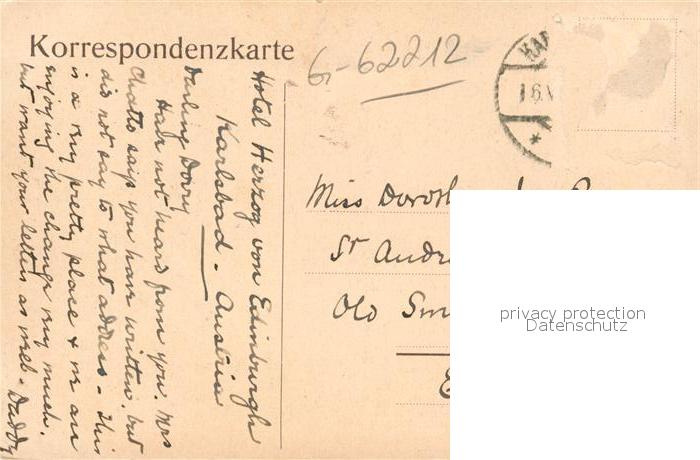 Korrespondenzkarte
6-62212
KAR
16.V
Hotel Herzog von Edinburgh
Karlsbad. Austria
Darling Dorry
Have not heard from you. Mrs
Chatts says you have written, but
did not say to what address - This
is a very pretty place & we are
enjoying the change very much.
but want your letters as well - Daddy
Miss Doroth
St Andre
Old Sm
E
privacy protection
Datenschutz